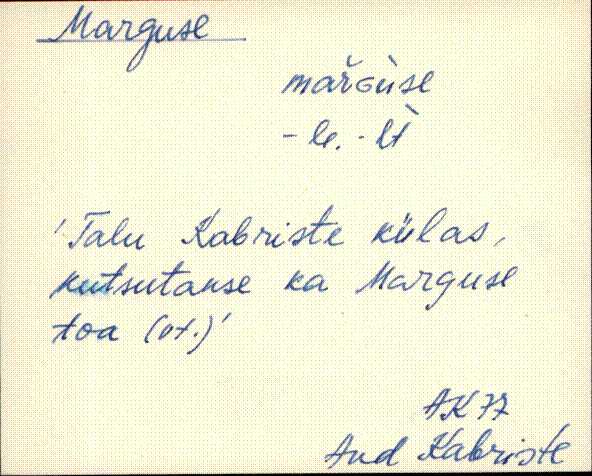 Marguse
mar̆Gùse
-le. -lt
'Talu Kabriste külas,
kutsutakse ka Marguse
toa (vt.)'
AK 77
Aud Kabriste